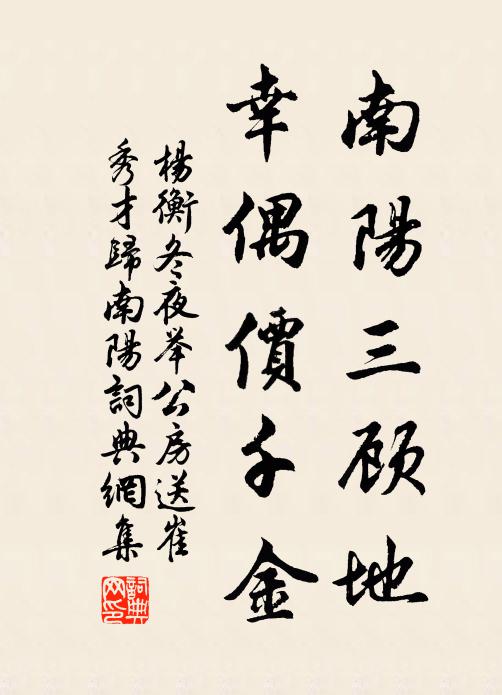 南陽三顾地
幸偶價千金
楊衡冬夜举公房送崔
秀才歸南陽詞典網集
詞典網印